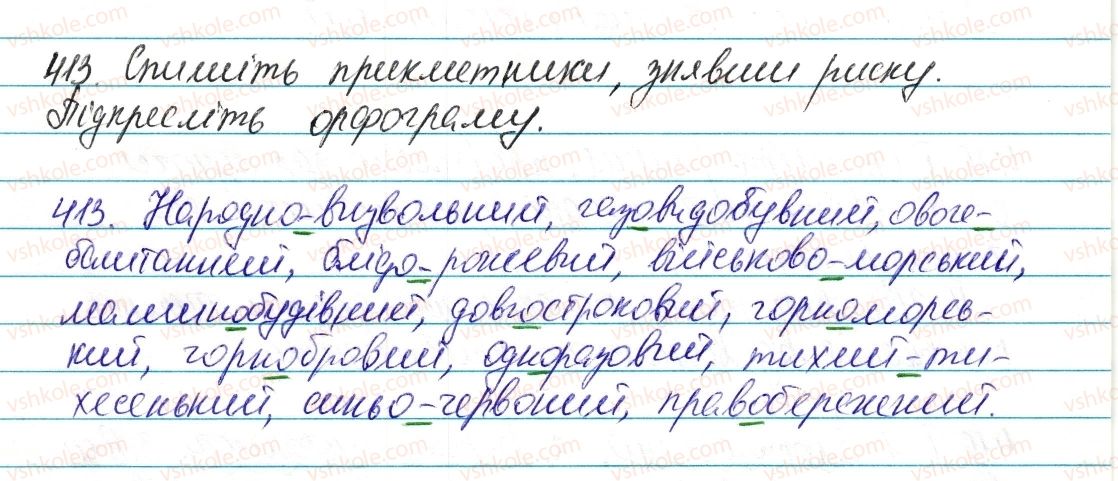 413. Спишіть прикметники, знявши риску.
Підкресліть орфограму.
413. Народно-визвольний, газовидобувний, овоче-
бамтанний, блідо-рожевий, військово-морський,
машинобудівний, довгостроковий, чорноморсь-
кий, чорнобровий, одноразовий, тихий-ти-
хесенький, синьо-червоний, правобережний.